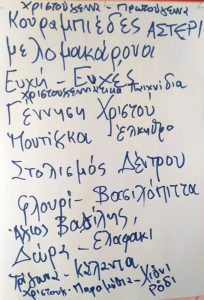 Χριστούγεννα - Πρωτούγεννα
Κουραμπιέδες ΑΣΤΕΡΙ
μελομακάρονα
Ευχή - Ευχές
Χριστουγεννιάτικα Παιχνίδια
Γέννηση Χριστου
Μουτίγκα έλκηθρο
Στολισμός Δέντρου
Φλουρί - Βασιλόπιττα
Άγιος Βασίλης,
Δώρα - Ελαφάκι
Τάβανα - Κάλαντα
Χριστουγ. Παραμύθια - Χιόνι
Ρόδι